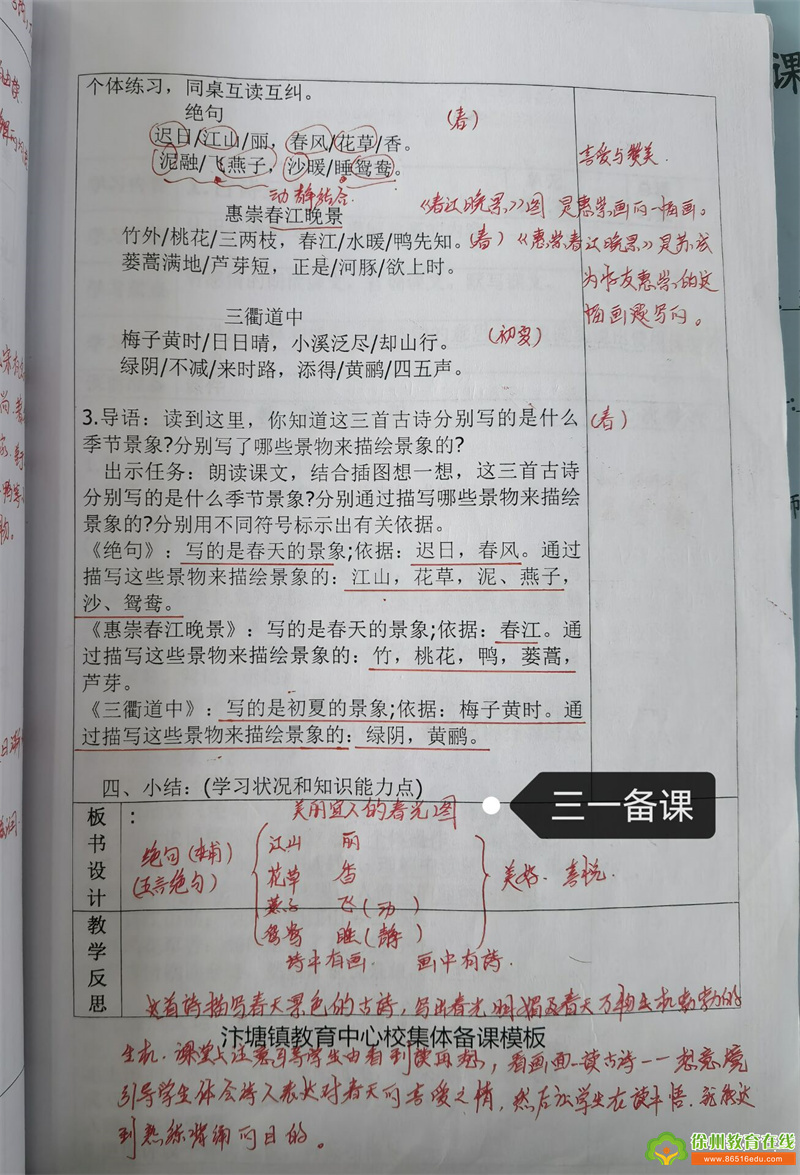 个体练习，同桌互读互纠。
绝句
（春）
迟日/江山/丽，春风/花草/香。
泥融/飞燕子，沙暖/睡鸳鸯。
喜爱与赞美.
动静结合
《春江晚景》图 是惠崇画的一幅画。
惠崇春江晚景
竹外/桃花/三两枝，春江/水暖/鸭先知。
（春）《惠崇春江晚景》是苏轼
蒌蒿满地/芦芽短，正是/河豚/欲上时。
为好友惠崇的这
幅画题写的。
三衢道中
梅子黄时/日日晴，小溪泛尽/却山行。
（初夏）
绿阴/不减/来时路，添得/黄鹂/四五声。
3.导语：读到这里，你知道这三首古诗分别写的是什么
（春）
季节景象?分别写了哪些景物来描绘景象的?
出示任务：朗读课文，结合插图想一想，这三首古诗
分别写的是什么季节景象?分别通过描写哪些景物来描绘
景象的?分别用不同符号标示出有关依据。
《绝句》：写的是春天的景象;依据：迟日，春风。通过
描写这些景物来描绘景象的：江山，花草，泥、燕子，
沙、鸳鸯。
《惠崇春江晚景》：写的是春天的景象;依据：春江。通
过描写这些景物来描绘景象的：竹，桃花，鸭，蒌蒿，
芦芽。
《三衢道中》：写的是初夏的景象;依据：梅子黄时。通
过描写这些景物来描绘景象的：绿阴，黄鹂。
四、小结：(学习状况和知识能力点)
三一备课
板书设计
：
美丽宜人的春光图
绝句（杜甫）
（五言绝句）
江山 丽
花草 香
燕子 飞（动）
鸳鸯 睡（静）
美好. 喜悦.
诗中有画. 画中有诗.
教学反思
这首诗描写春天景色的古诗，写出春光明媚及春天万物生机勃勃的
汴塘镇教育中心校集体备课模板
生机。课堂上注意引导学生由看到读再想，看画面—读古诗——想意境
引导学生体会诗人表达对春天的喜爱之情，然后让学生在读中悟，就能达
到熟练背诵的目的。
徐州教育在线
www.86516edu.com